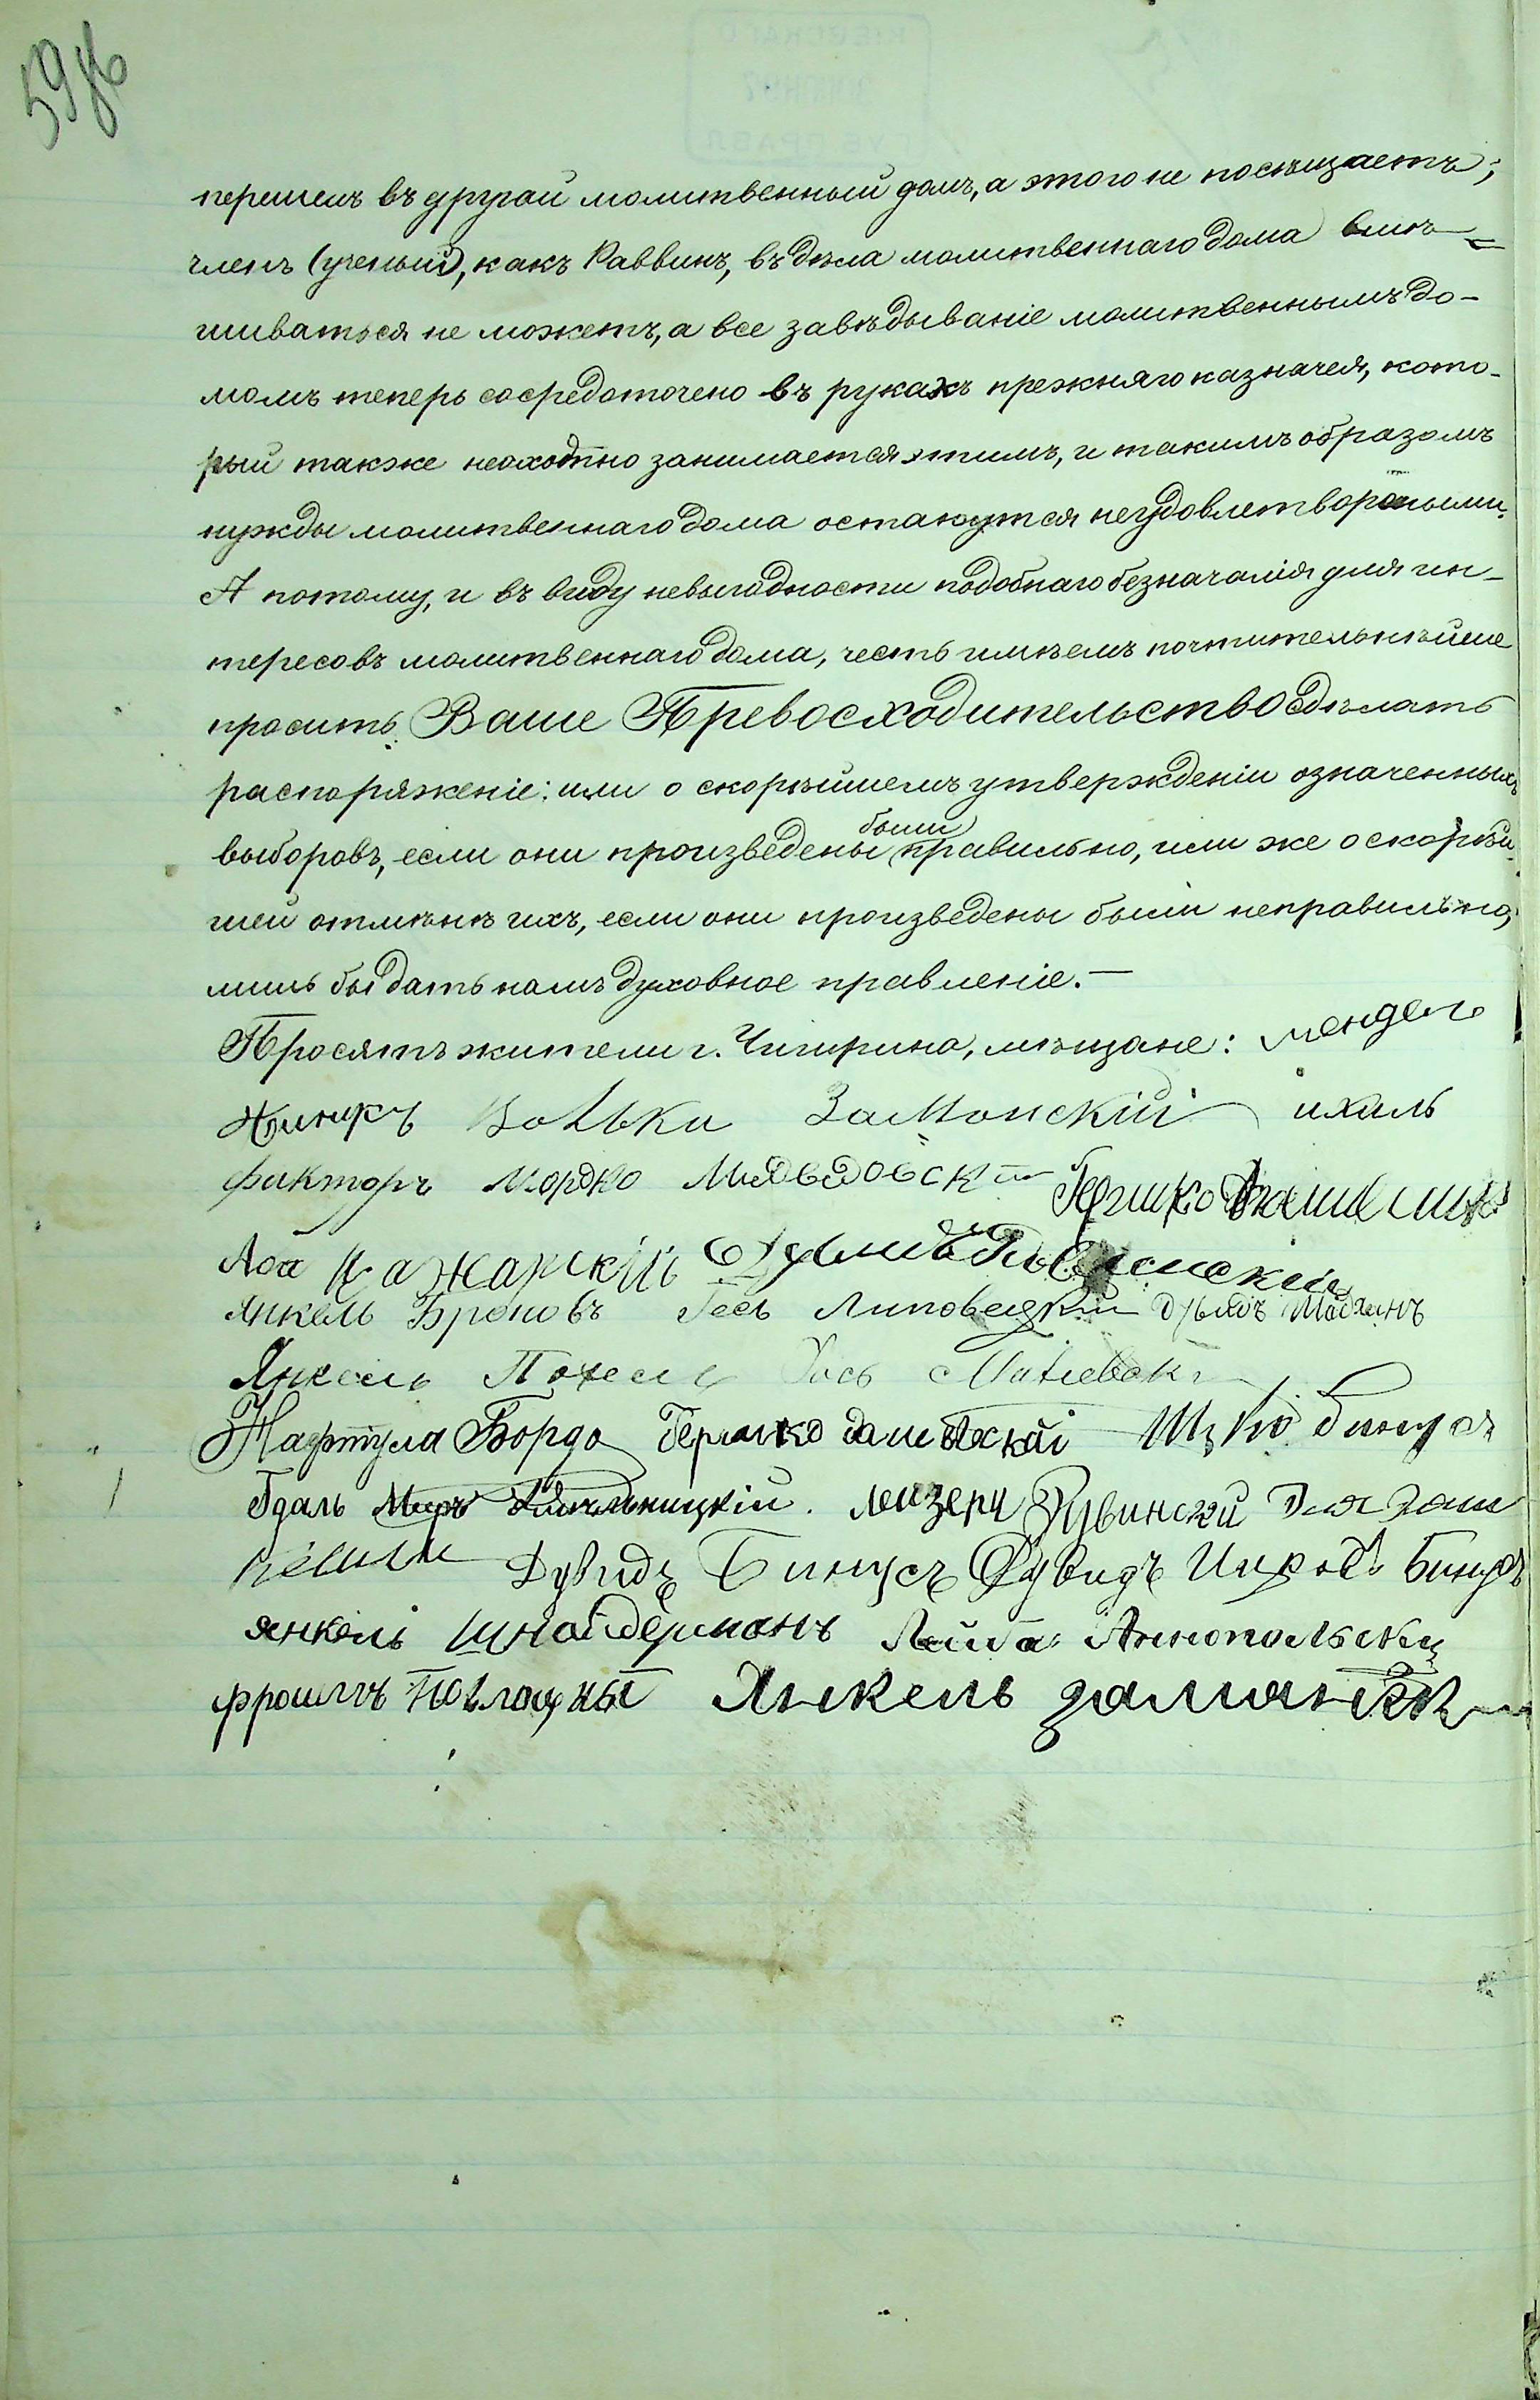 59об
перешелъ въ другой молитвенный домъ, а этого не посѣщаетъ;
членъ (ученый), какъ Раввинъ, въ дѣла молитвеннаго дома вмѣ-
шиваться не можетъ, а все завѣдываніе молитвеннымъ до-
момъ теперь сосредоточено въ рукахъ прежняго казначея, кото-
рый также неохотно занимается этимъ, и такимъ образомъ
нужды молитвеннаго дома остаются неудовлетвореными.
А потому, и въ виду невыгодности подобнаго безначалія для ин-
тересовъ молитвеннаго дома, честь имѣемъ почтительнѣйше
просить Ваше Превосходительство сдѣлать
распоряженіе: или о скорѣйшемъ утвержденіи означенныхъ
были
выборовъ, если они произведены правильно, или же о скорѣй-
шей отмѣнѣ ихъ, если они произведены были неправильно,
лишь бы дать намъ духовное правленіе.—
Просятъ жители г. Чигирина, мѣщане: Мендель
Волько Замонскій ихиль
факторъ Мордко Медведовски
Гершко
Янкель Броновъ Липовецкій
Янкель Хось
Нафтула Бордо Гершко
Гдаль Лейзеръ Рувинскій
Дувидъ Бинусъ Дувидъ Бинусъ
янкель шнайдерманъ Лейба Аннопольски
фроимъ Янкель